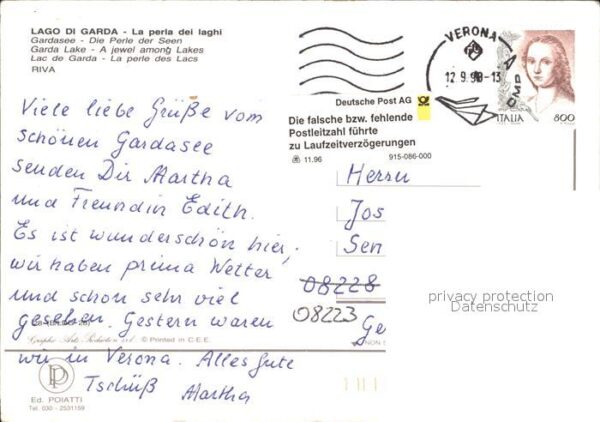 LAGO DI GARDA - La perla dei laghi
Gardasee - Die Perle der Seen
Garda Lake - A jewel among Lakes
Lac de Garda - La perle des Lacs
RIVA
Viele liebe Grüße vom
schönen Gardasee
senden Dir Martha
und Freundin Edith.
Es ist wunderschön hier,
wir haben prima Wetter
und schon sehr viel
gesehen. Gestern waren
wir in Verona. Alles Gute
Tschüß Martha
© Printed in C.E.E.
Ed. POIATTI
Tel. 030 - 2531159
VERONA
12.9.98-13
ITALIA 800
Deutsche Post AG
Die falsche bzw. fehlende
Postleitzahl führte
zu Laufzeitverzögerungen
11.96 915-086-000
Herrn
Jos
Sen
08228
08223
Ge
NON S
privacy protection
Datenschutz